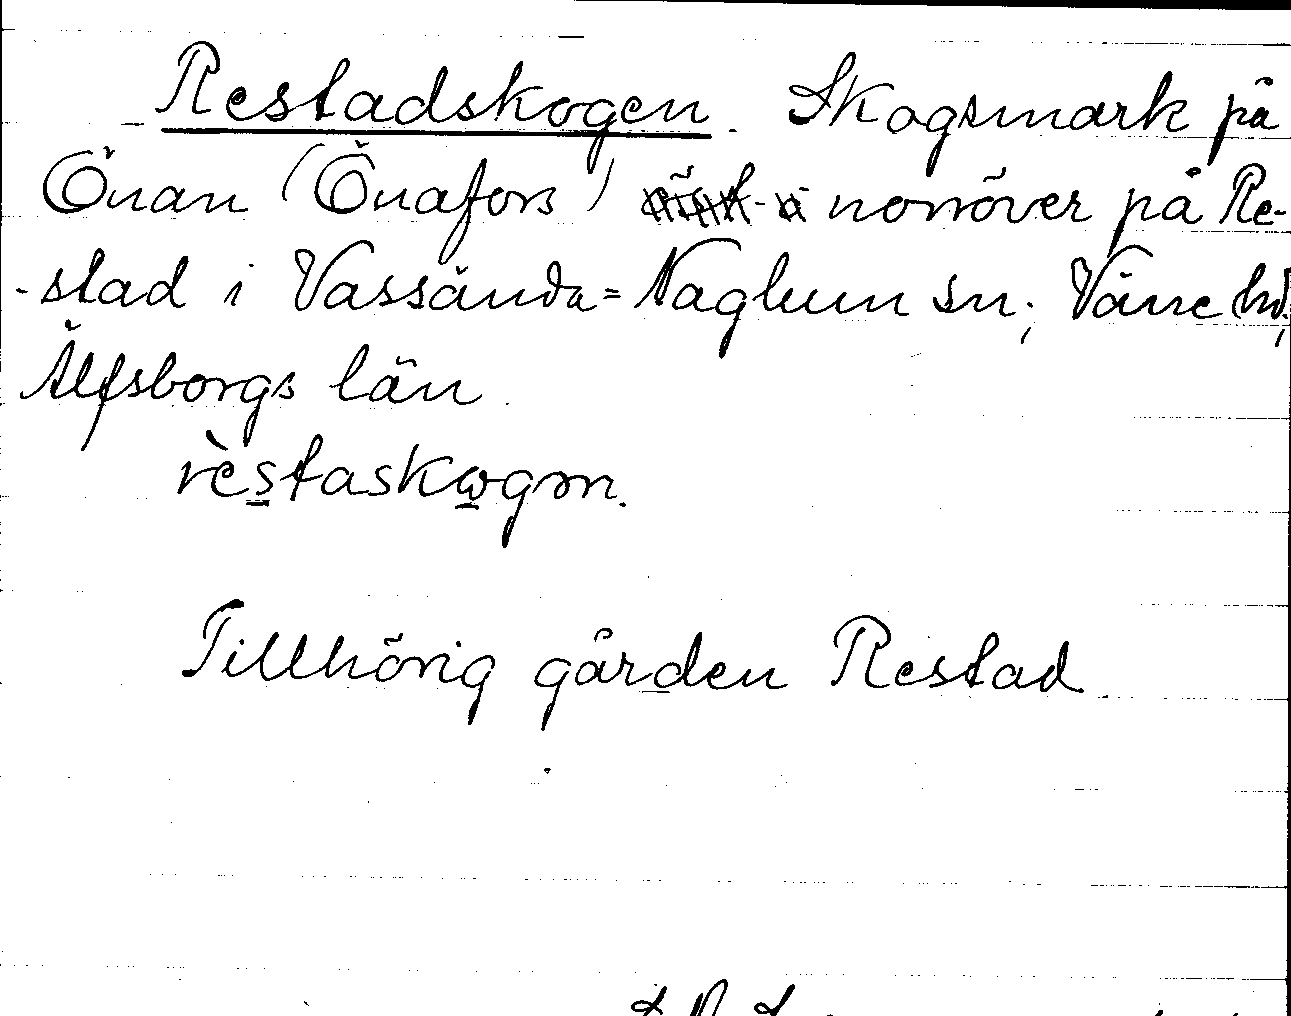 Restadskogen. Skogsmark på
Önan (Önafors) norröver på Re-
-stad i Vassända=Naglum sn; Väne hd,
Älfsborgs län
rèstaskωgən.
Tillhörig gården Restad